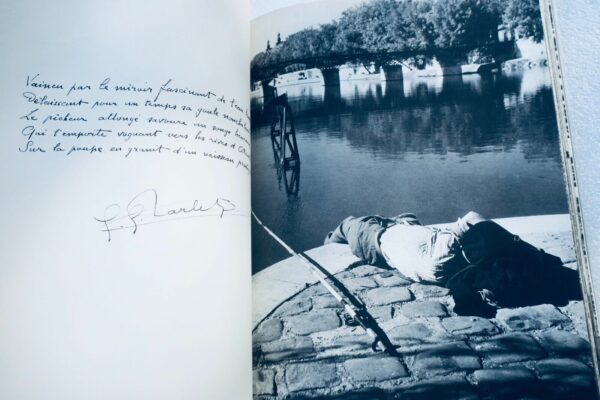 Vaincu par le miroir fascinant de l'eau
Délaissant pour un temps sa gaule
Le pêcheur allongé savoure un songe
Qui t'emporte voguant vers les rives d'
Sur la poupe en granit d'un vaisseau